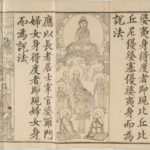 婆夷身得度者即現比丘比
丘尼優婆塞優婆夷身而為
說法
應以長者居士宰官婆羅門
婦女身得度者即現婦女身
而為說法